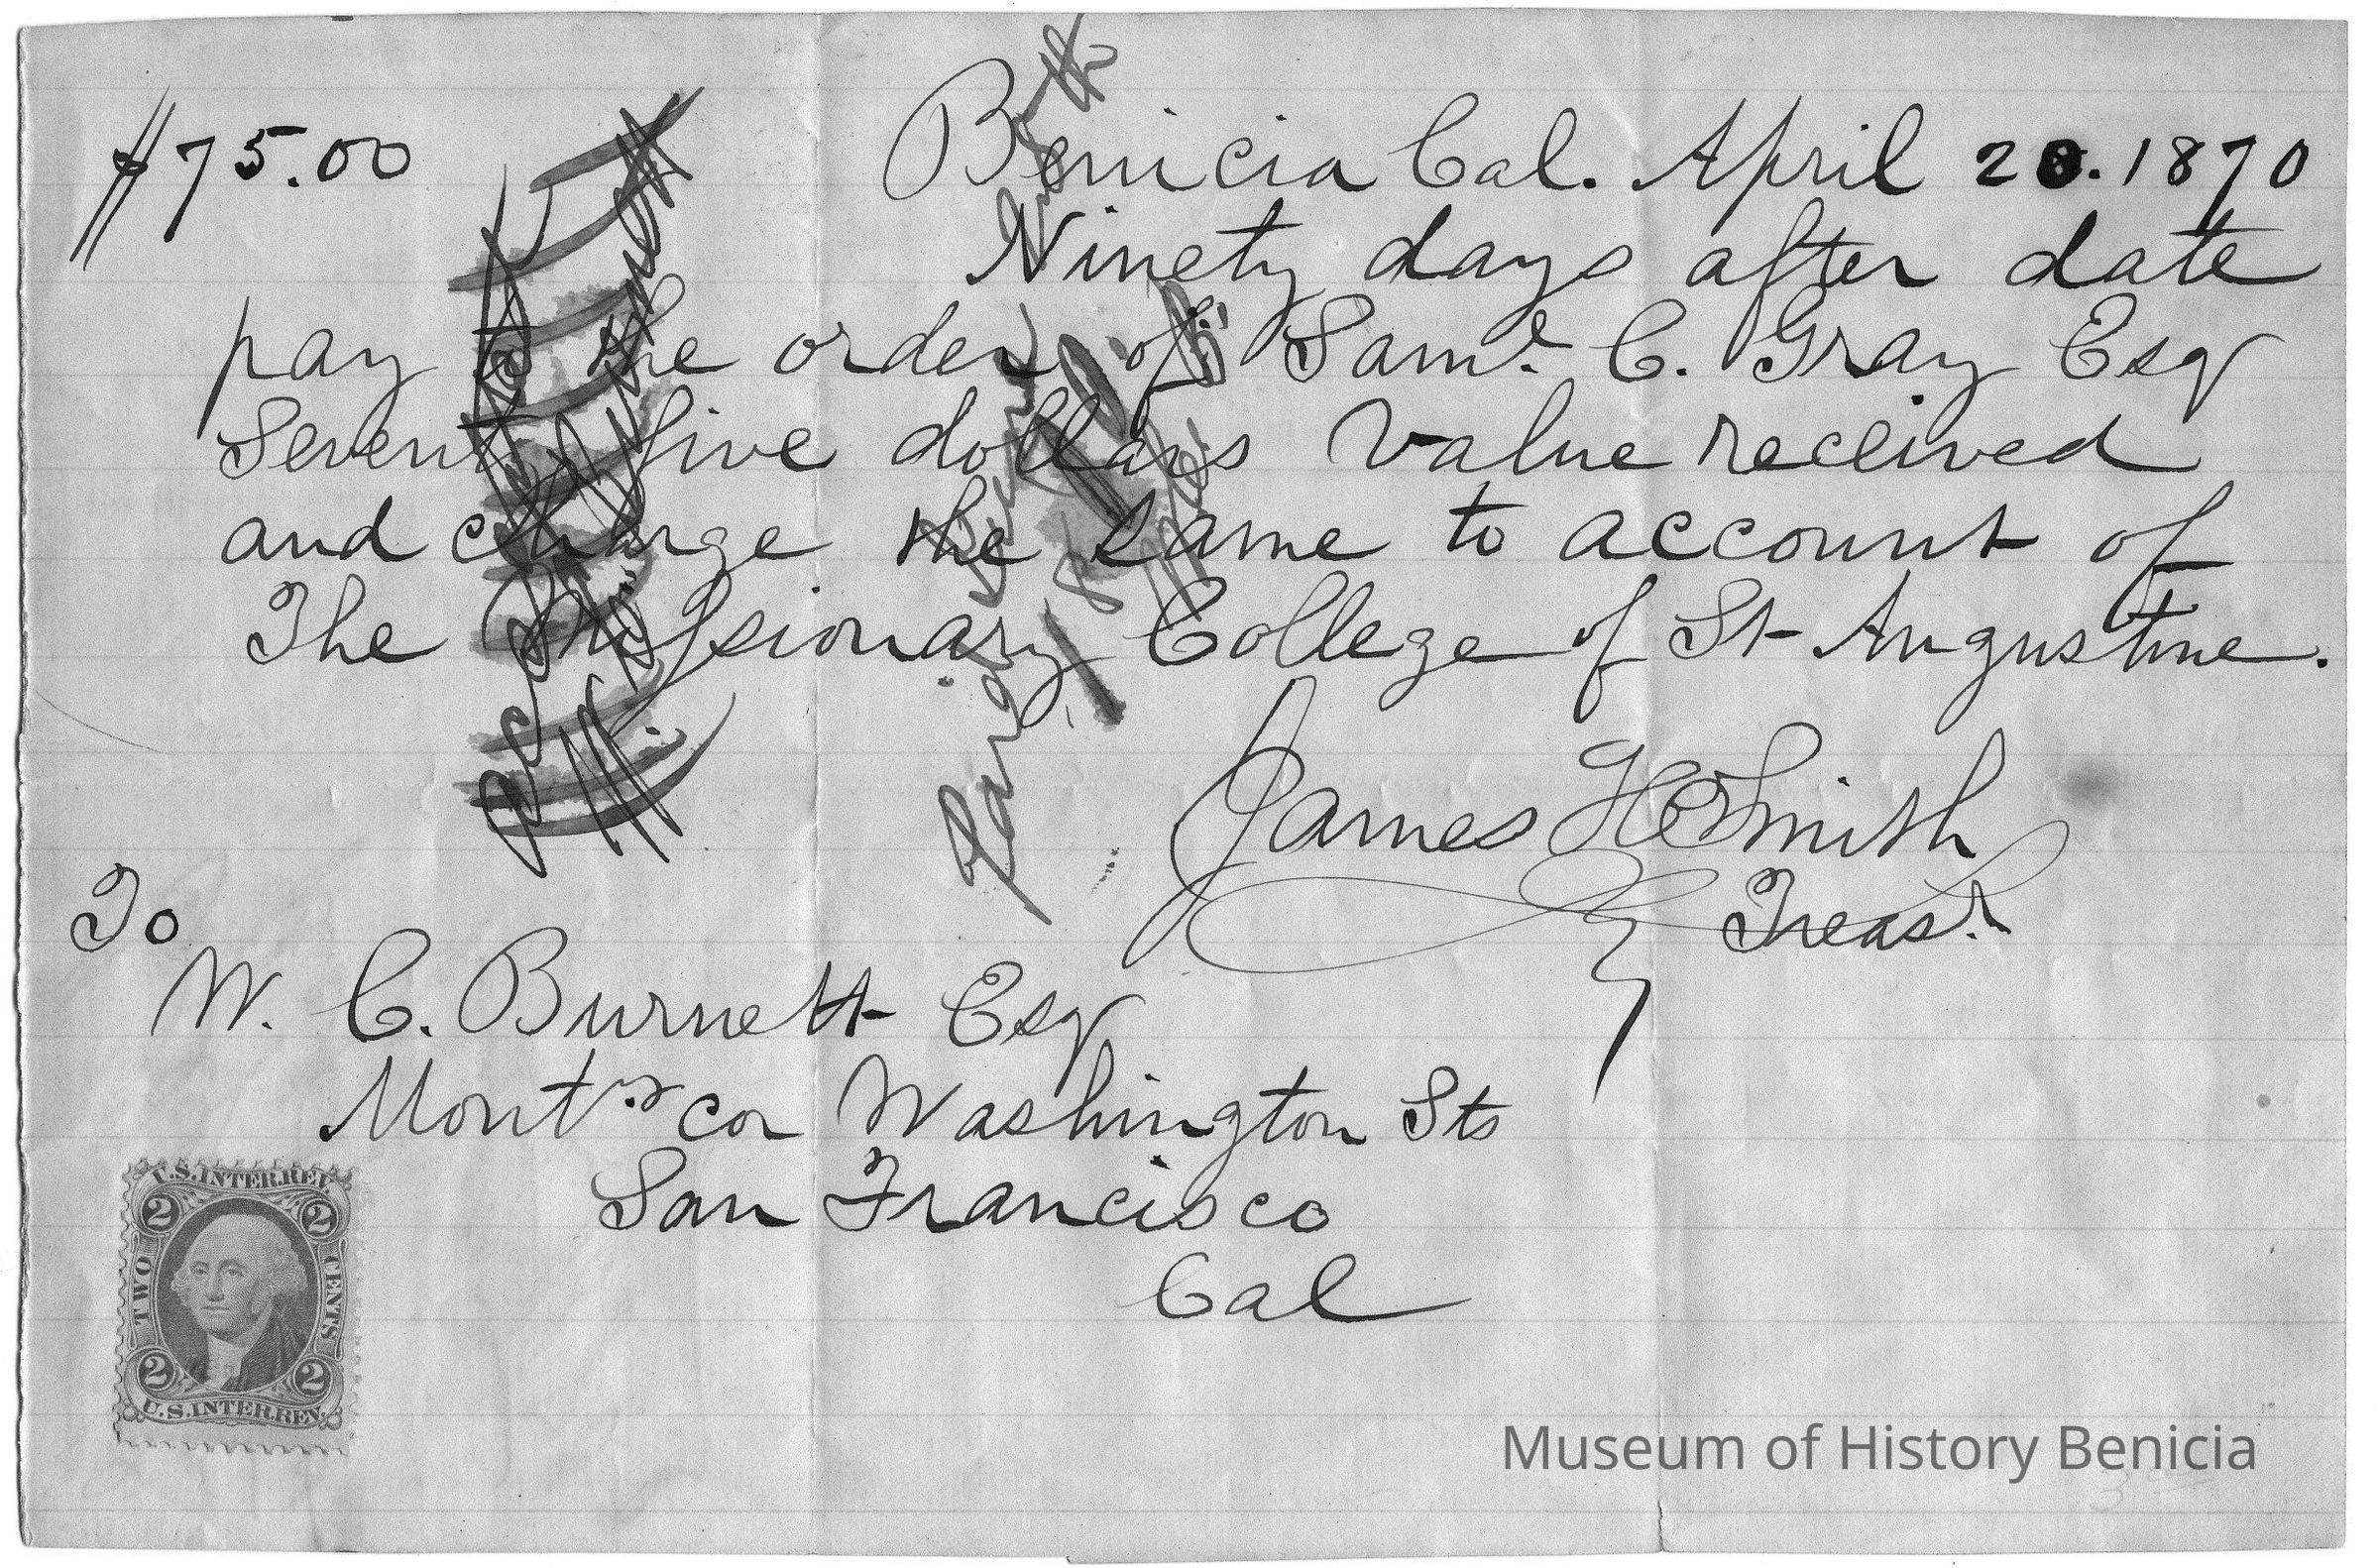 $75.00
Benicia Cal. April 20. 1870
Ninety days after date
pay to the order of Saml. C. Gray Esq
Seventy five dollars Value received
and charge the same to account of
The Missionary College of St Augustine.
James H Smith
Treasr.
To
W. C. Burnett Esq
Montgy cor Washington Sts
San Francisco
Cal
U.S. INTER. REV.
2 2
TWO CENTS
2 2
U.S. INTER. REV.
Museum of History Benicia